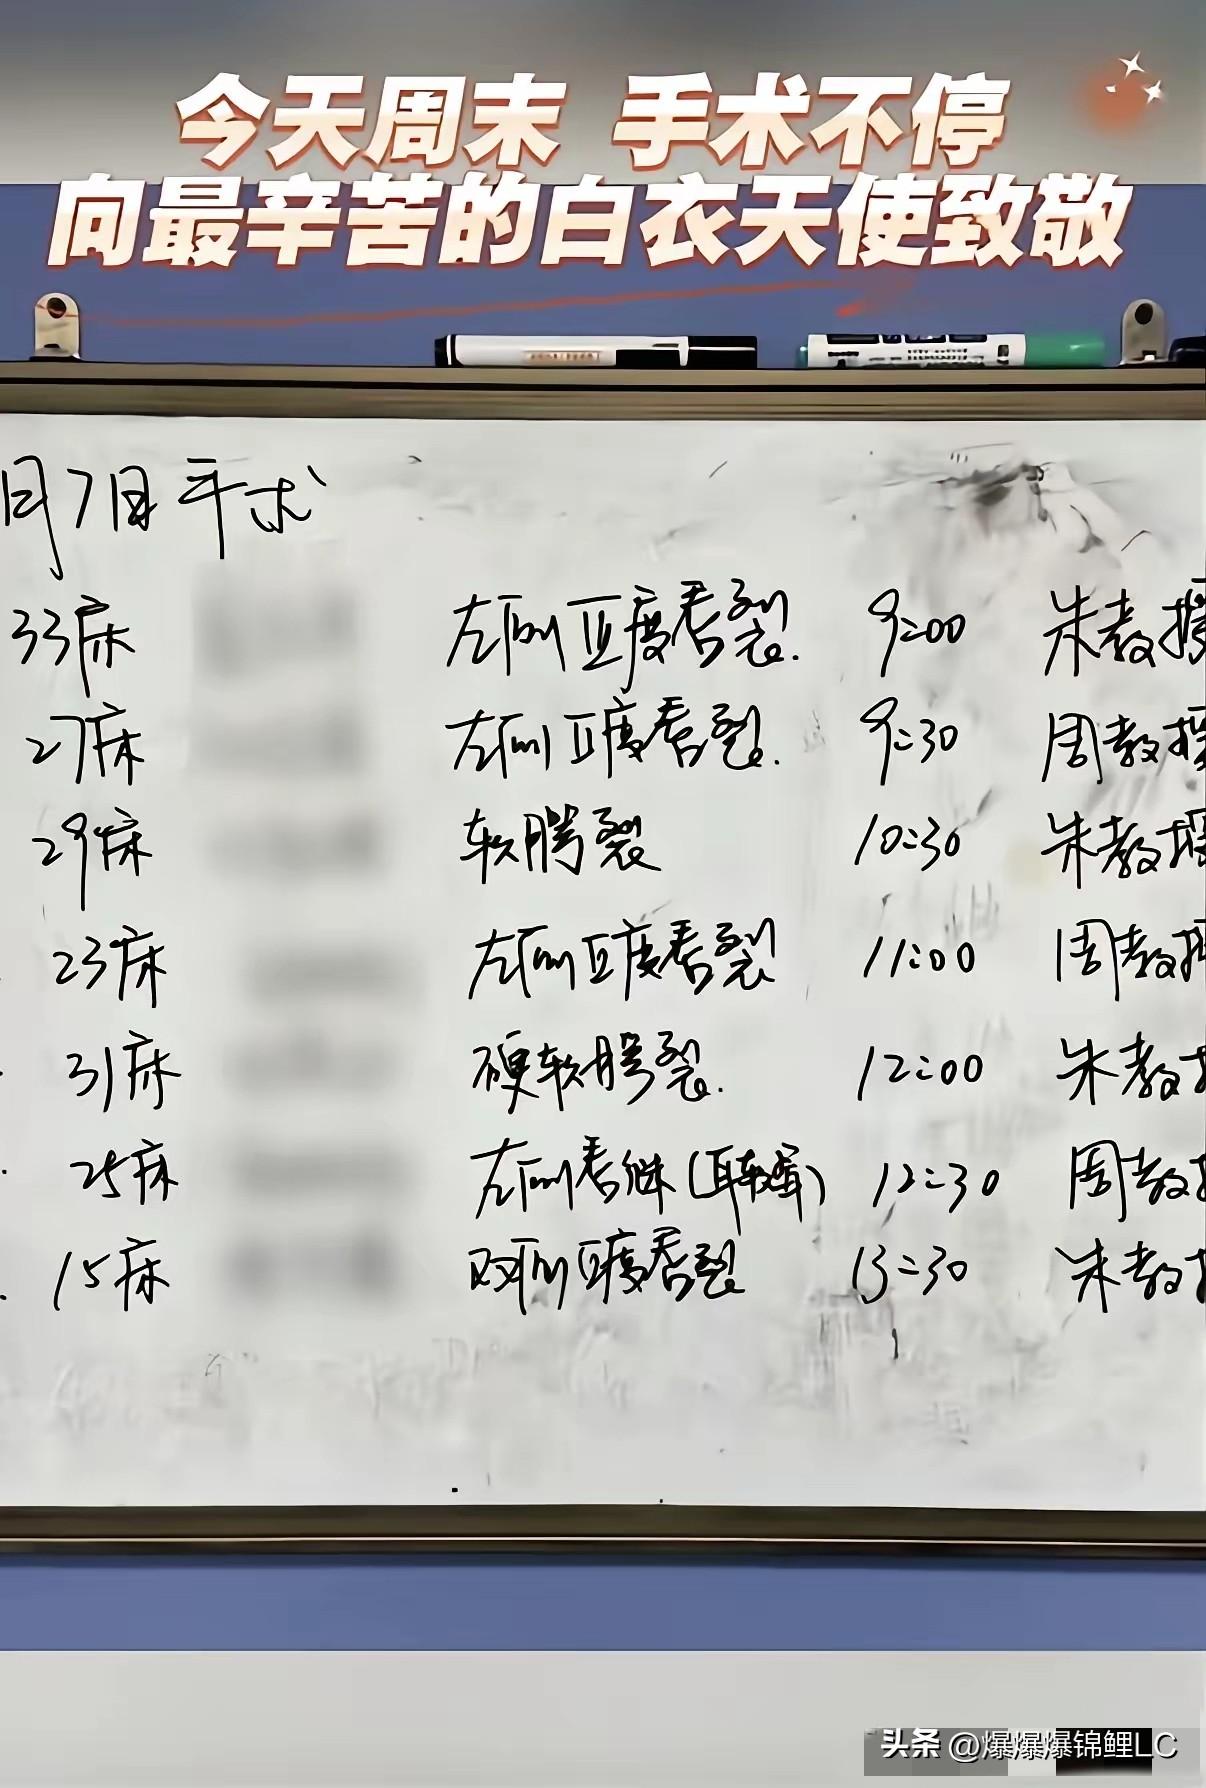 今天周末 手术不停
向最辛苦的白衣天使致敬
月7日手术
33床 左侧Ⅲ度唇裂. 9:00 朱教授
27床 左侧Ⅱ度唇裂. 9:30 周教授
29床 软腭裂 10:30 朱教授
23床 左侧Ⅱ度唇裂 11:00 周教授
31床 硬软腭裂. 12:00 朱教授
25床 左侧唇继(耳软 12:30 周教授
15床 双侧Ⅲ度唇裂 13:30 朱教授
头条 @爆爆爆锦鲤LC